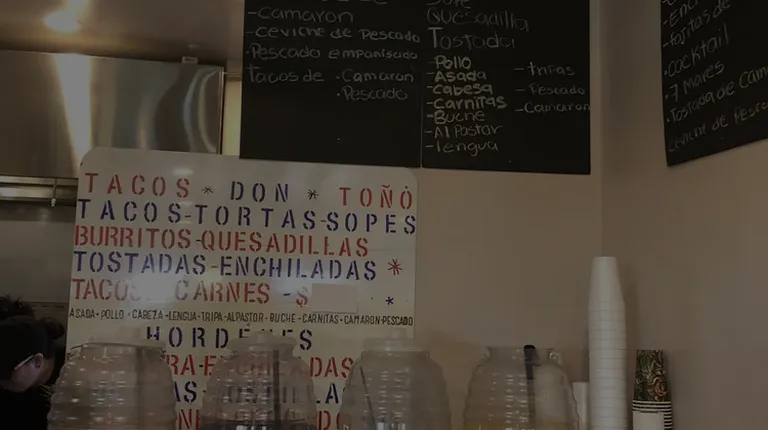 -Camaron
-Ceviche de Pescado
-Pescado empanisado
Tacos de · Camaron
· Pescado
Quesadilla
Tostada
-Pollo
-Asada
-Cabesa
-Carnitas
-Buche
-Al Pastor
-lengua
-tripas
-Pescado
-Camaron
-Fajitas de
-Cocktail
-7 Mares
-Tostada de Cam
Ceviche de Pesc
TACOS * DON * TOÑO
TACOS-TORTAS-SOPES
BURRITOS-QUESADILLAS
TOSTADAS-ENCHILADAS *
TACOS CARNES -$ *
ASADA·POLLO·CABEZA-LENGUA-TRIPA-ALPASTOR-BUCHE-CARNITAS-CAMARON-PESCADO